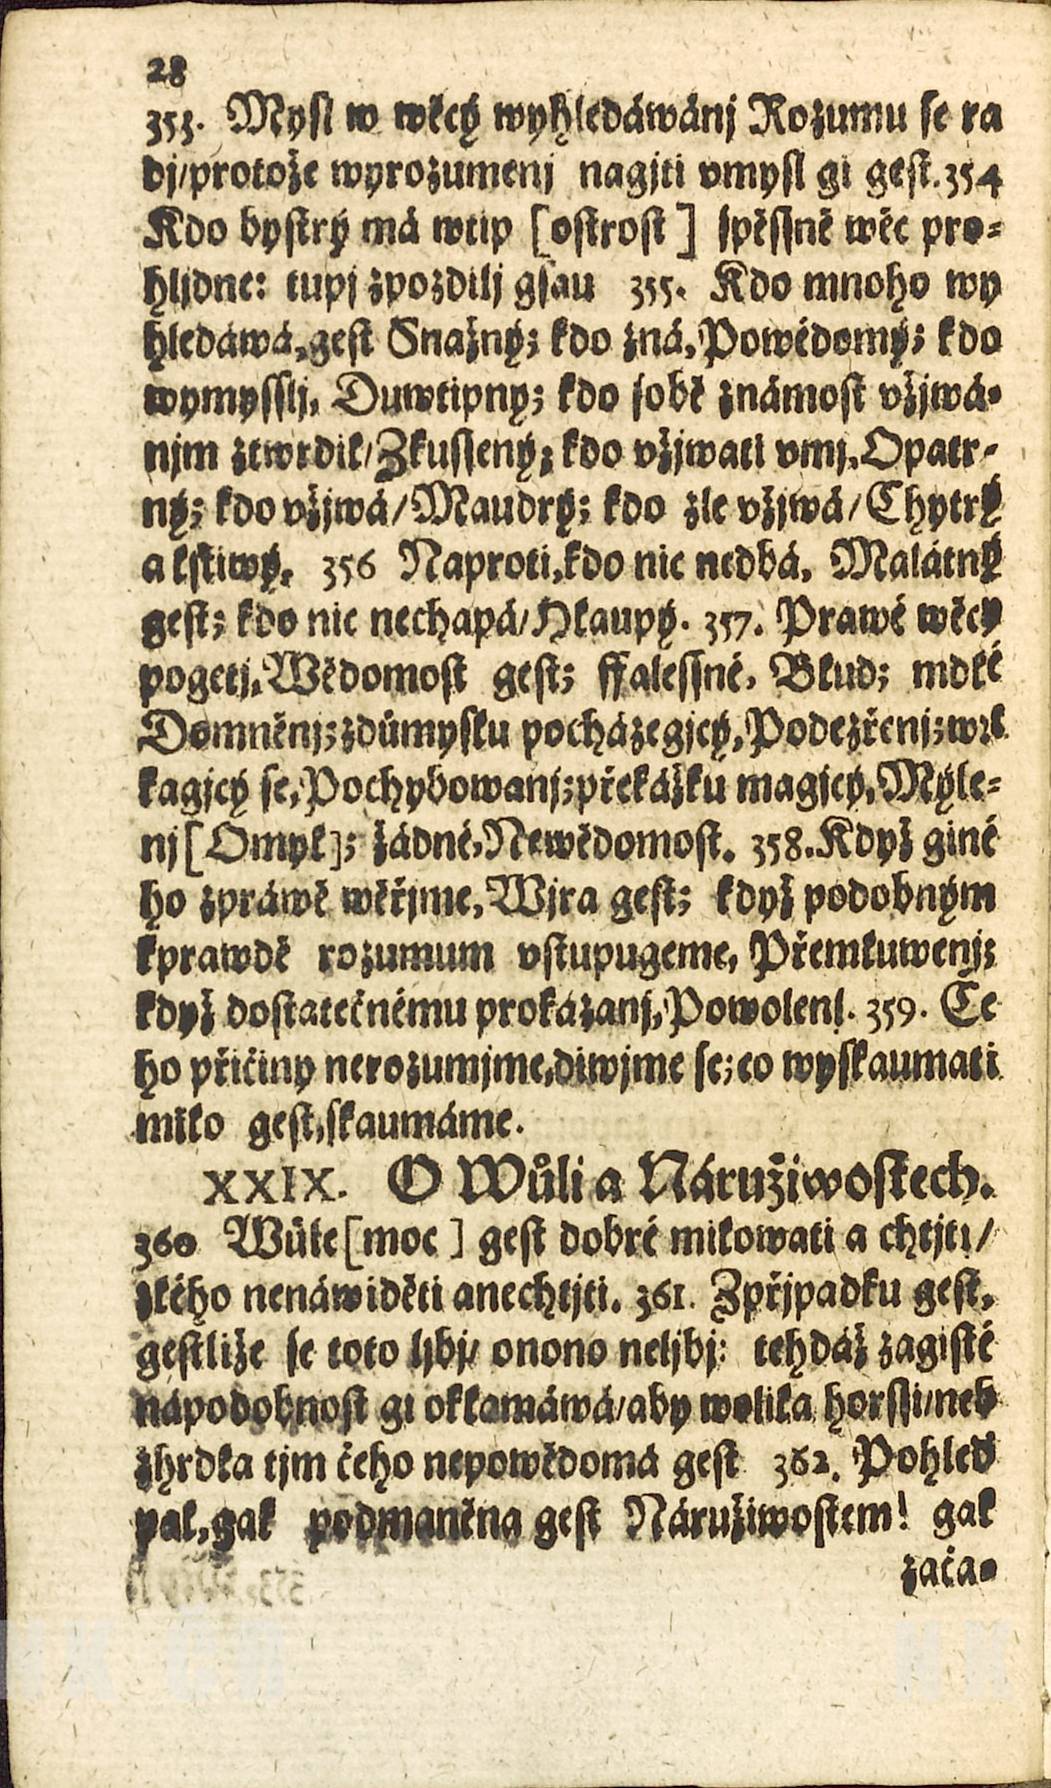 28
353. Mysl w wěcý wyhledáwánj Rozumu se ra
dj/protože wyrozumenj nagjti vmysl gi gest. 354
Kdo bystrý má wtip [ostrost] spěssně wěc pro=
hlidne: tupj zpozdilj gsau 355. Kdo mnoho wy
hledáwá, gest Snažný; kdo zná, Powědomý; kdo
wymysslj, Duwtipny; kdo sobě známost vžjwá=
njm ztwrdil/Zkussený; kdo vžjwati vmj, Opatr=
ný; kdo vžjwá/Maudrý; kdo zle vžjwá/Chytrý
a lstiwý. 356 Naproti, kdo nic nedbá, Malátný
gest; kdo nic nechapá/Hlaupý. 357. Prawé wěcy
pogetj, Wědomost gest; ffalessné, Blud; mdlé
Domněnj; zdůmyslu pocházegjcý, Podezřenj; wrl
kagjcý se, Pochybowanj; překážku magjcý, Mýle=
nj [Omyl]; žádné, Newědomost. 358. Když giné
ho zpráwě wěřjme, Wjra gest; když podobným
kprawdě rozumum vstupugeme, Přemluwenj;
když dostatečnému prokázanj, Powolenj. 359. Če
ho přičiny nerozumjme, diwjme se; co wyskaumati
milo gest, skaumáme.
XXIX. O Wůli a Náružiwostech.
360 Wůle [moc] gest dobré milowati a chtjti/
zlého nenáwiděti anechtjti. 361. Zpřjpadku gest,
gestliže se toto ljbj/ onono neljbj: tehdáž zagisté
nápodobnost gi oklamáwá/aby wolila horssi/neb
zhrdla tjm čeho nepowědomá gest 362. Pohleď
pak, gak podmaněna gest Náružiwostem! gak
zača=